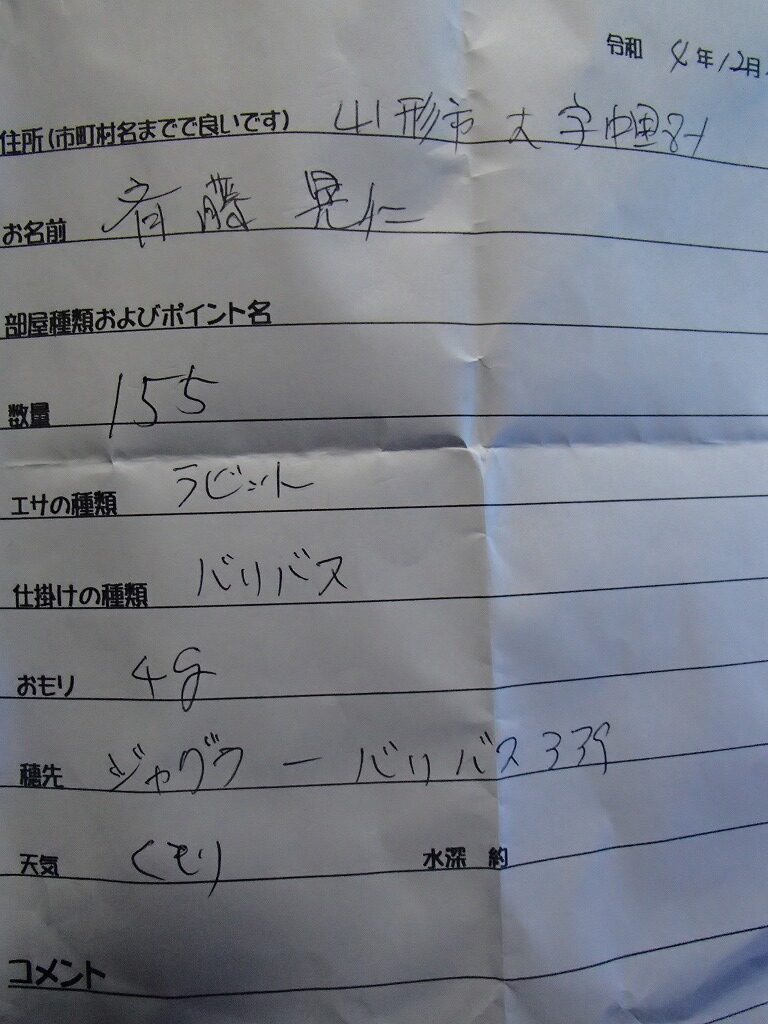 令和 4年12月
住所(市町村名までで良いです) 山形市大字中里81
お名前 斉藤晃仁
部屋種類およびポイント名
数量 155
エサの種類 ラビット
仕掛けの種類 バリバス
おもり 4g
穂先 ジャグラー バリバス339
天気 くもり 水深 約
コメント